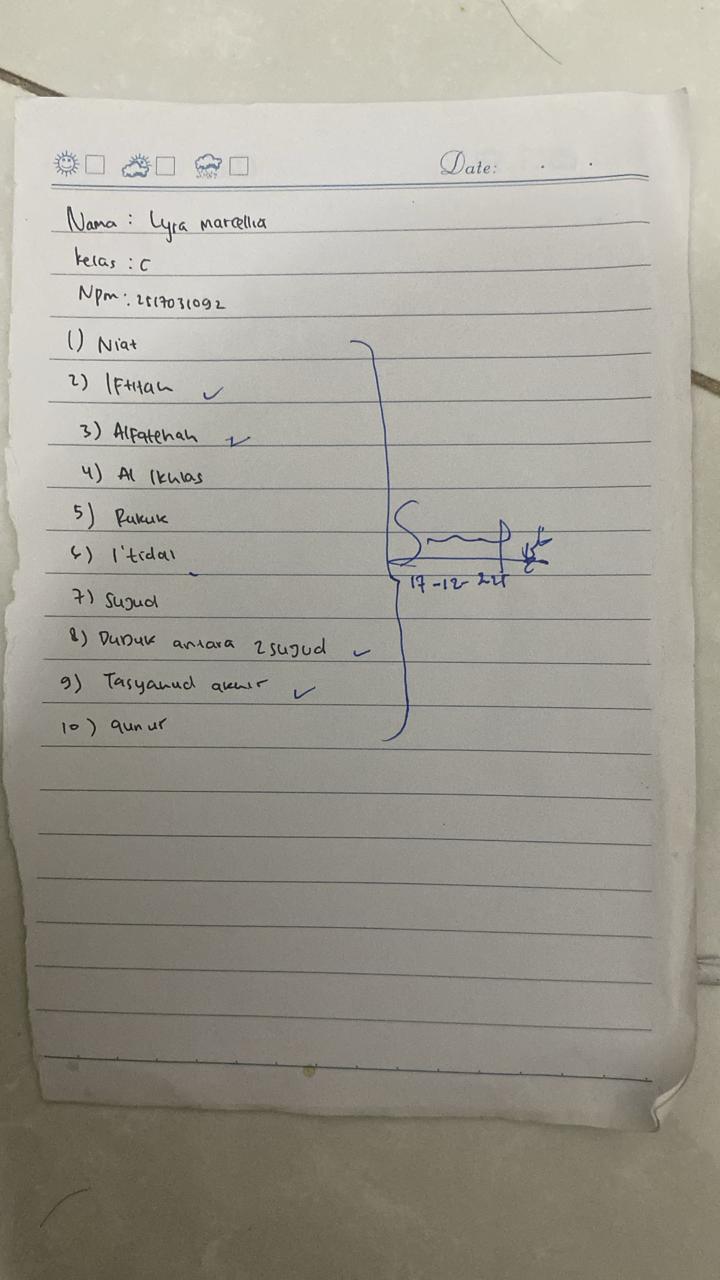 Date:
Nama : Lyra marcellia
kelas : C
Npm : 2517031092
1) Niat
2) Iftitah
3) Alfatehah
4) Al Ikhlas
5) Rukuk
6) I'tidal
7) Sujud
8) Duduk antara 2 sujud
9) Tasyahud akhir
10) qunut
17-12-